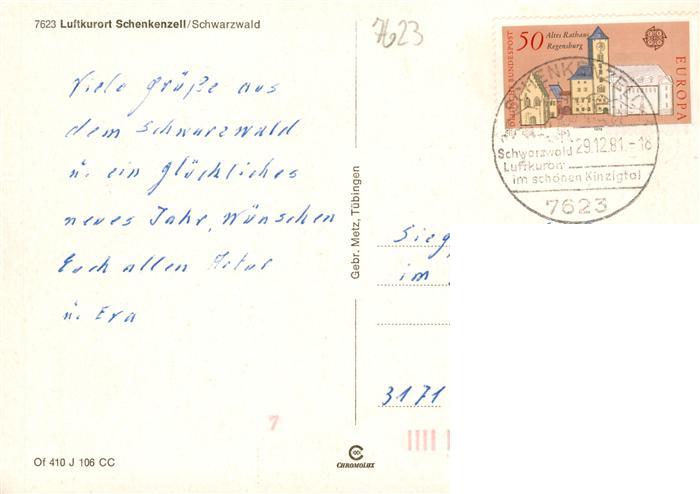 7623 Luftkurort Schenkenzell/Schwarzwald
7623
Viele Grüße aus
dem Schwarzwald
u. ein Glückliches
neues Jahr, Wünschen
Euch allen Artur
u. Eva
Gebr. Metz, Tübingen
DEUTSCHE BUNDESPOST
50
Altes Rathaus
Regensburg
EUROPA
SCHENKENZELL
Schwarzwald 29.12.81.-18
Luftkurort
im schönen Kinzigtal
7623
Sieg
im
3171
7
Of 410 J 106 CC
CHROMOLUX